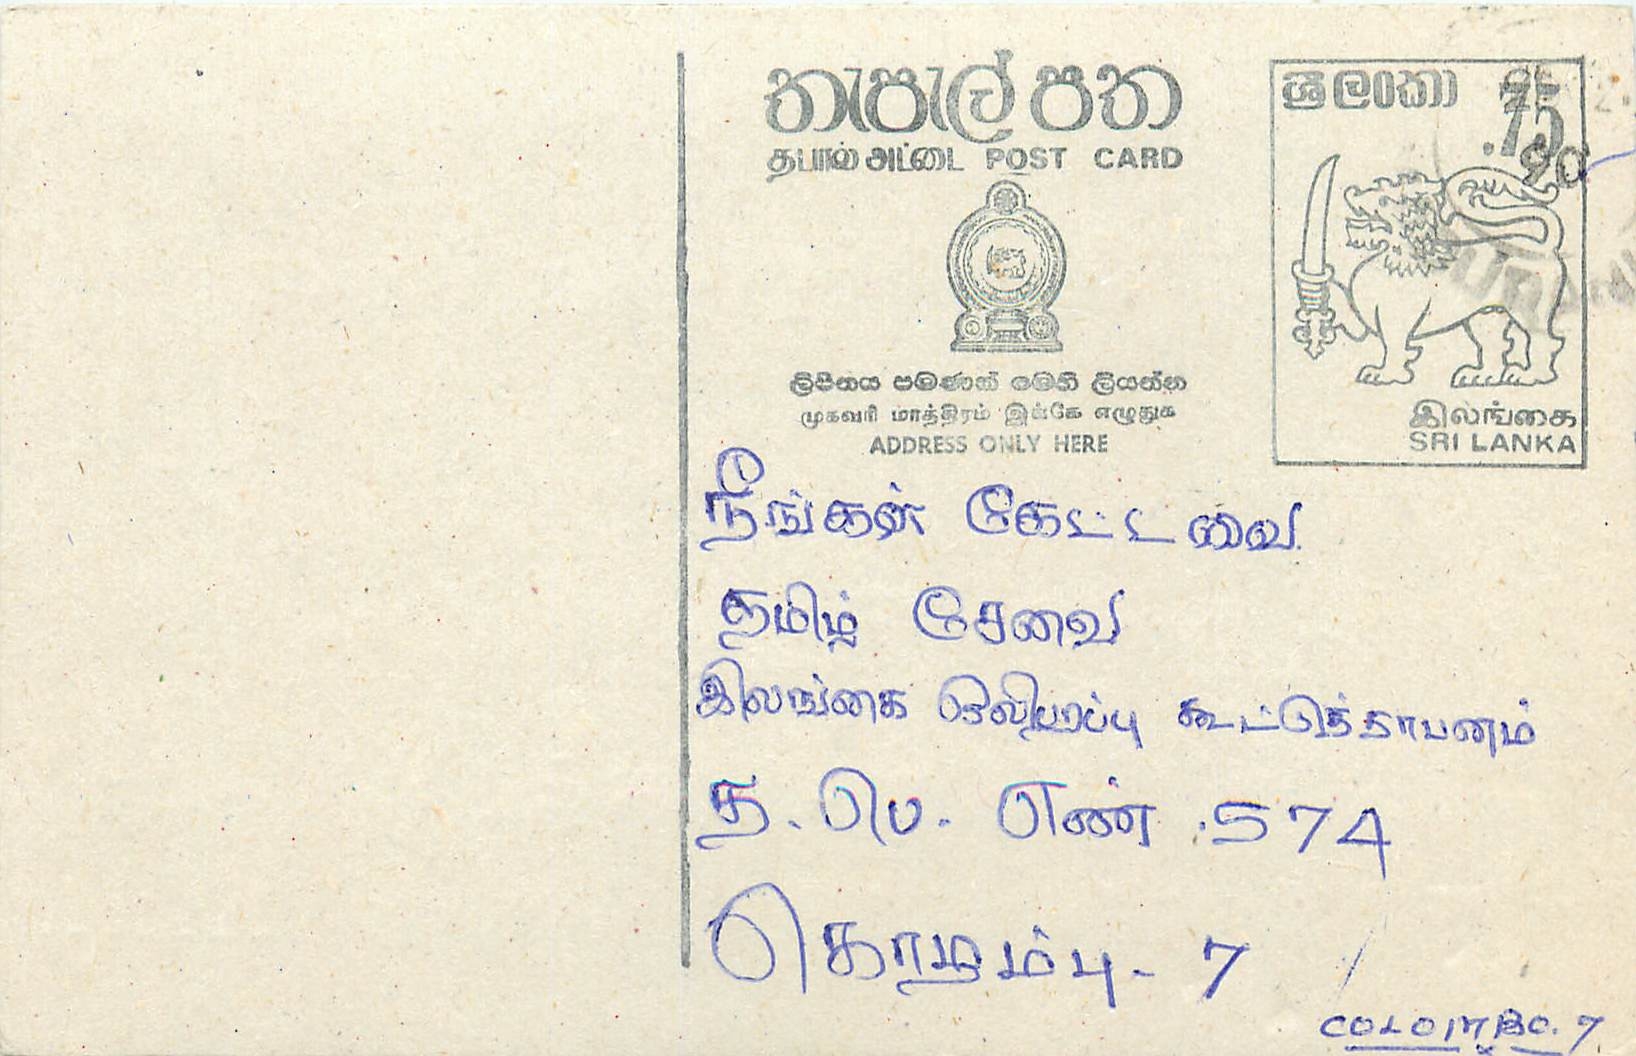 තැපැල් පත
தபால் அட்டை POST CARD
ලිපිනය පමණක් මෙහි ලියන්න
முகவரி மாத்திரம் இங்கே எழுதுக
ADDRESS ONLY HERE
ශ්‍රී ලංකා
.75
90
இலங்கை
SRI LANKA
நீங்கள் கேட்டவை
தமிழ் சேவை
இலங்கை ஒலிபரப்பு கூட்டுத்தாபனம்
த. பெ. எண் .574
கொழும்பு - 7
COLOMBO. 7